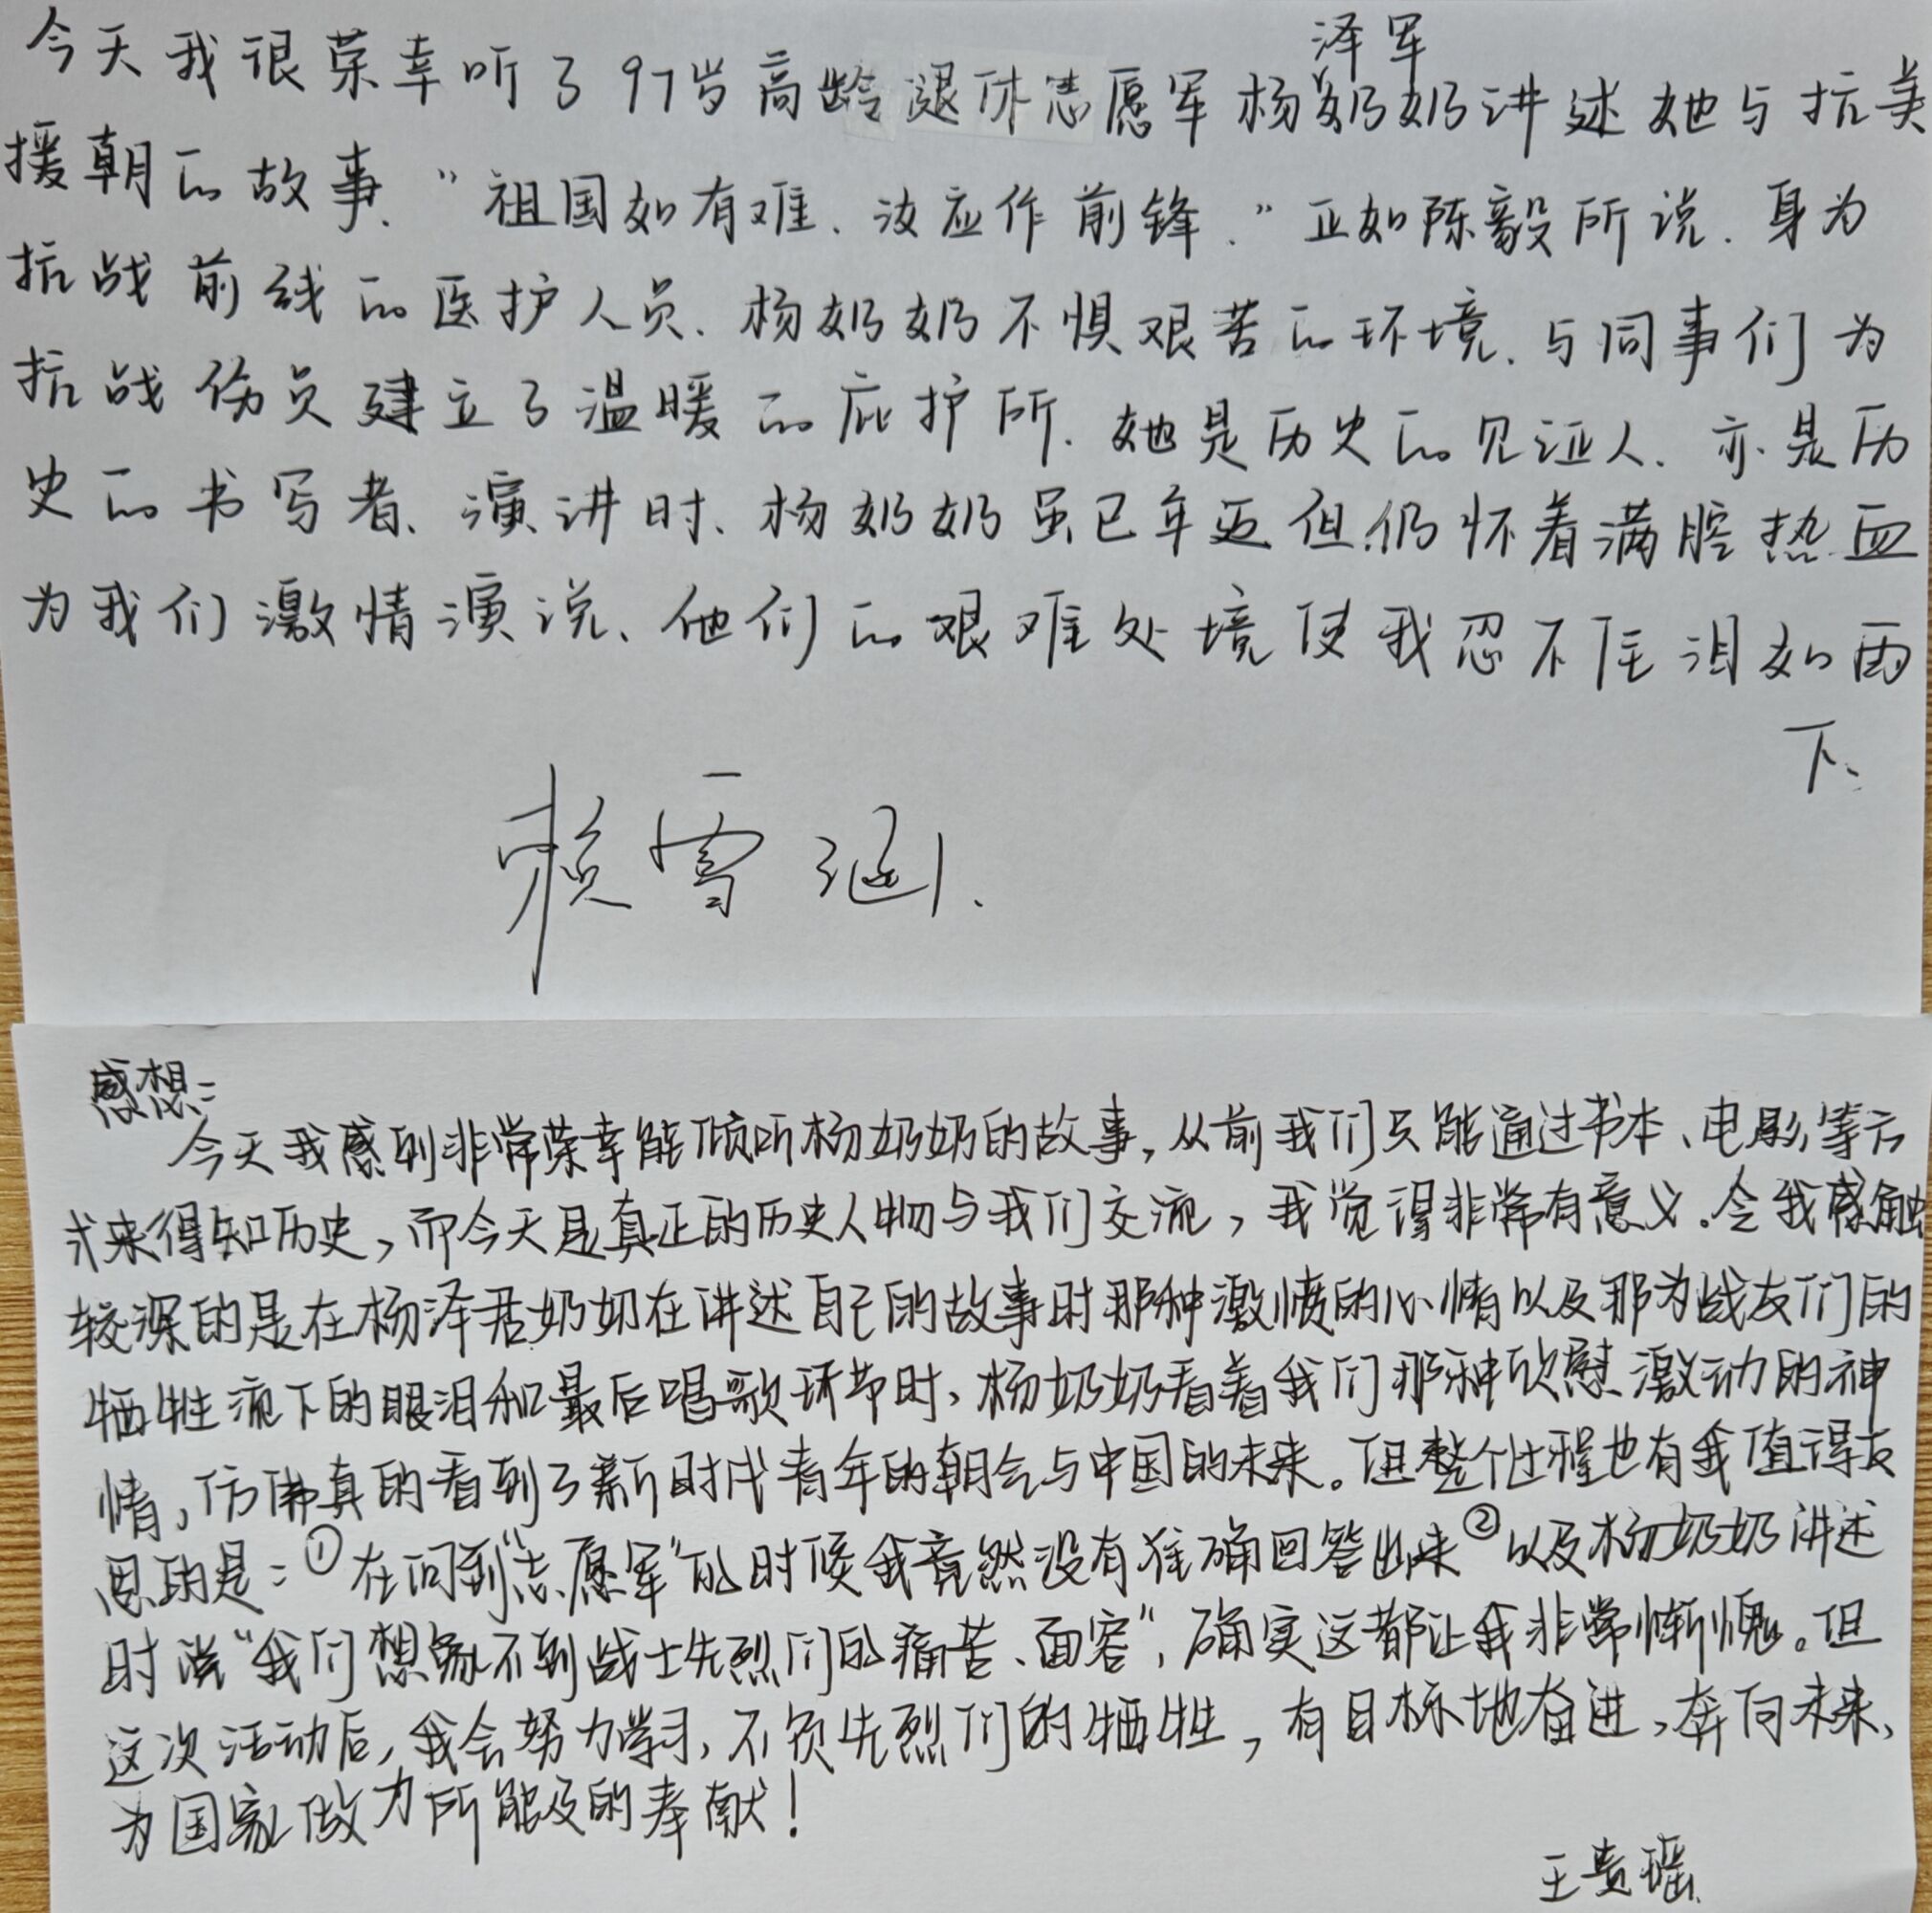 泽军
今天我很荣幸听了97岁高龄退休志愿军杨奶奶讲述她与抗美
援朝的故事."祖国如有难.汝应作前锋."正如陈毅所说.身为
抗战前线的医护人员.杨奶奶不惧艰苦的环境.与同事们为
抗战伤员建立了温暖的庇护所.她是历史的见证人.亦是历
史的书写者、演讲时、杨奶奶虽已年迈但仍怀着满腔热血
为我们激情演说、他们的艰难处境使我忍不住泪如雨
下、
赖雪涵.
感想:
今天我感到非常荣幸能倾听杨奶奶的故事,从前我们只能通过书本、电影等方
式来得知历史,而今天是真正的历史人物与我们交流,我觉得非常有意义。令我感触
较深的是在杨泽君奶奶在讲述自己的故事时那种激愤的心情以及那为战友们的
牺牲流下的眼泪和最后唱歌环节时,杨奶奶看着我们那种欣慰激动的神
情,仿佛真的看到了新时代青年的朝会与中国的未来。但整个过程也有我值得反
思的是:①在问到"志愿军"的时候我竟然没有准确回答出来②以及杨奶奶讲述
时说"我们想象不到战士先烈们的痛苦、面容",确实这都让我非常惭愧。但
这次活动后,我会努力学习,不负先烈们的牺牲,有目标地奋进,奔向未来,
为国家做力所能及的奉献!
王贵瑶